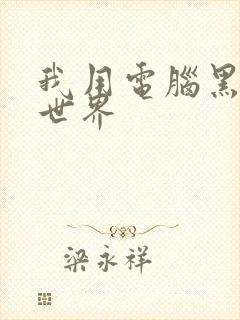 我用電腦黑
世界
梁永祥